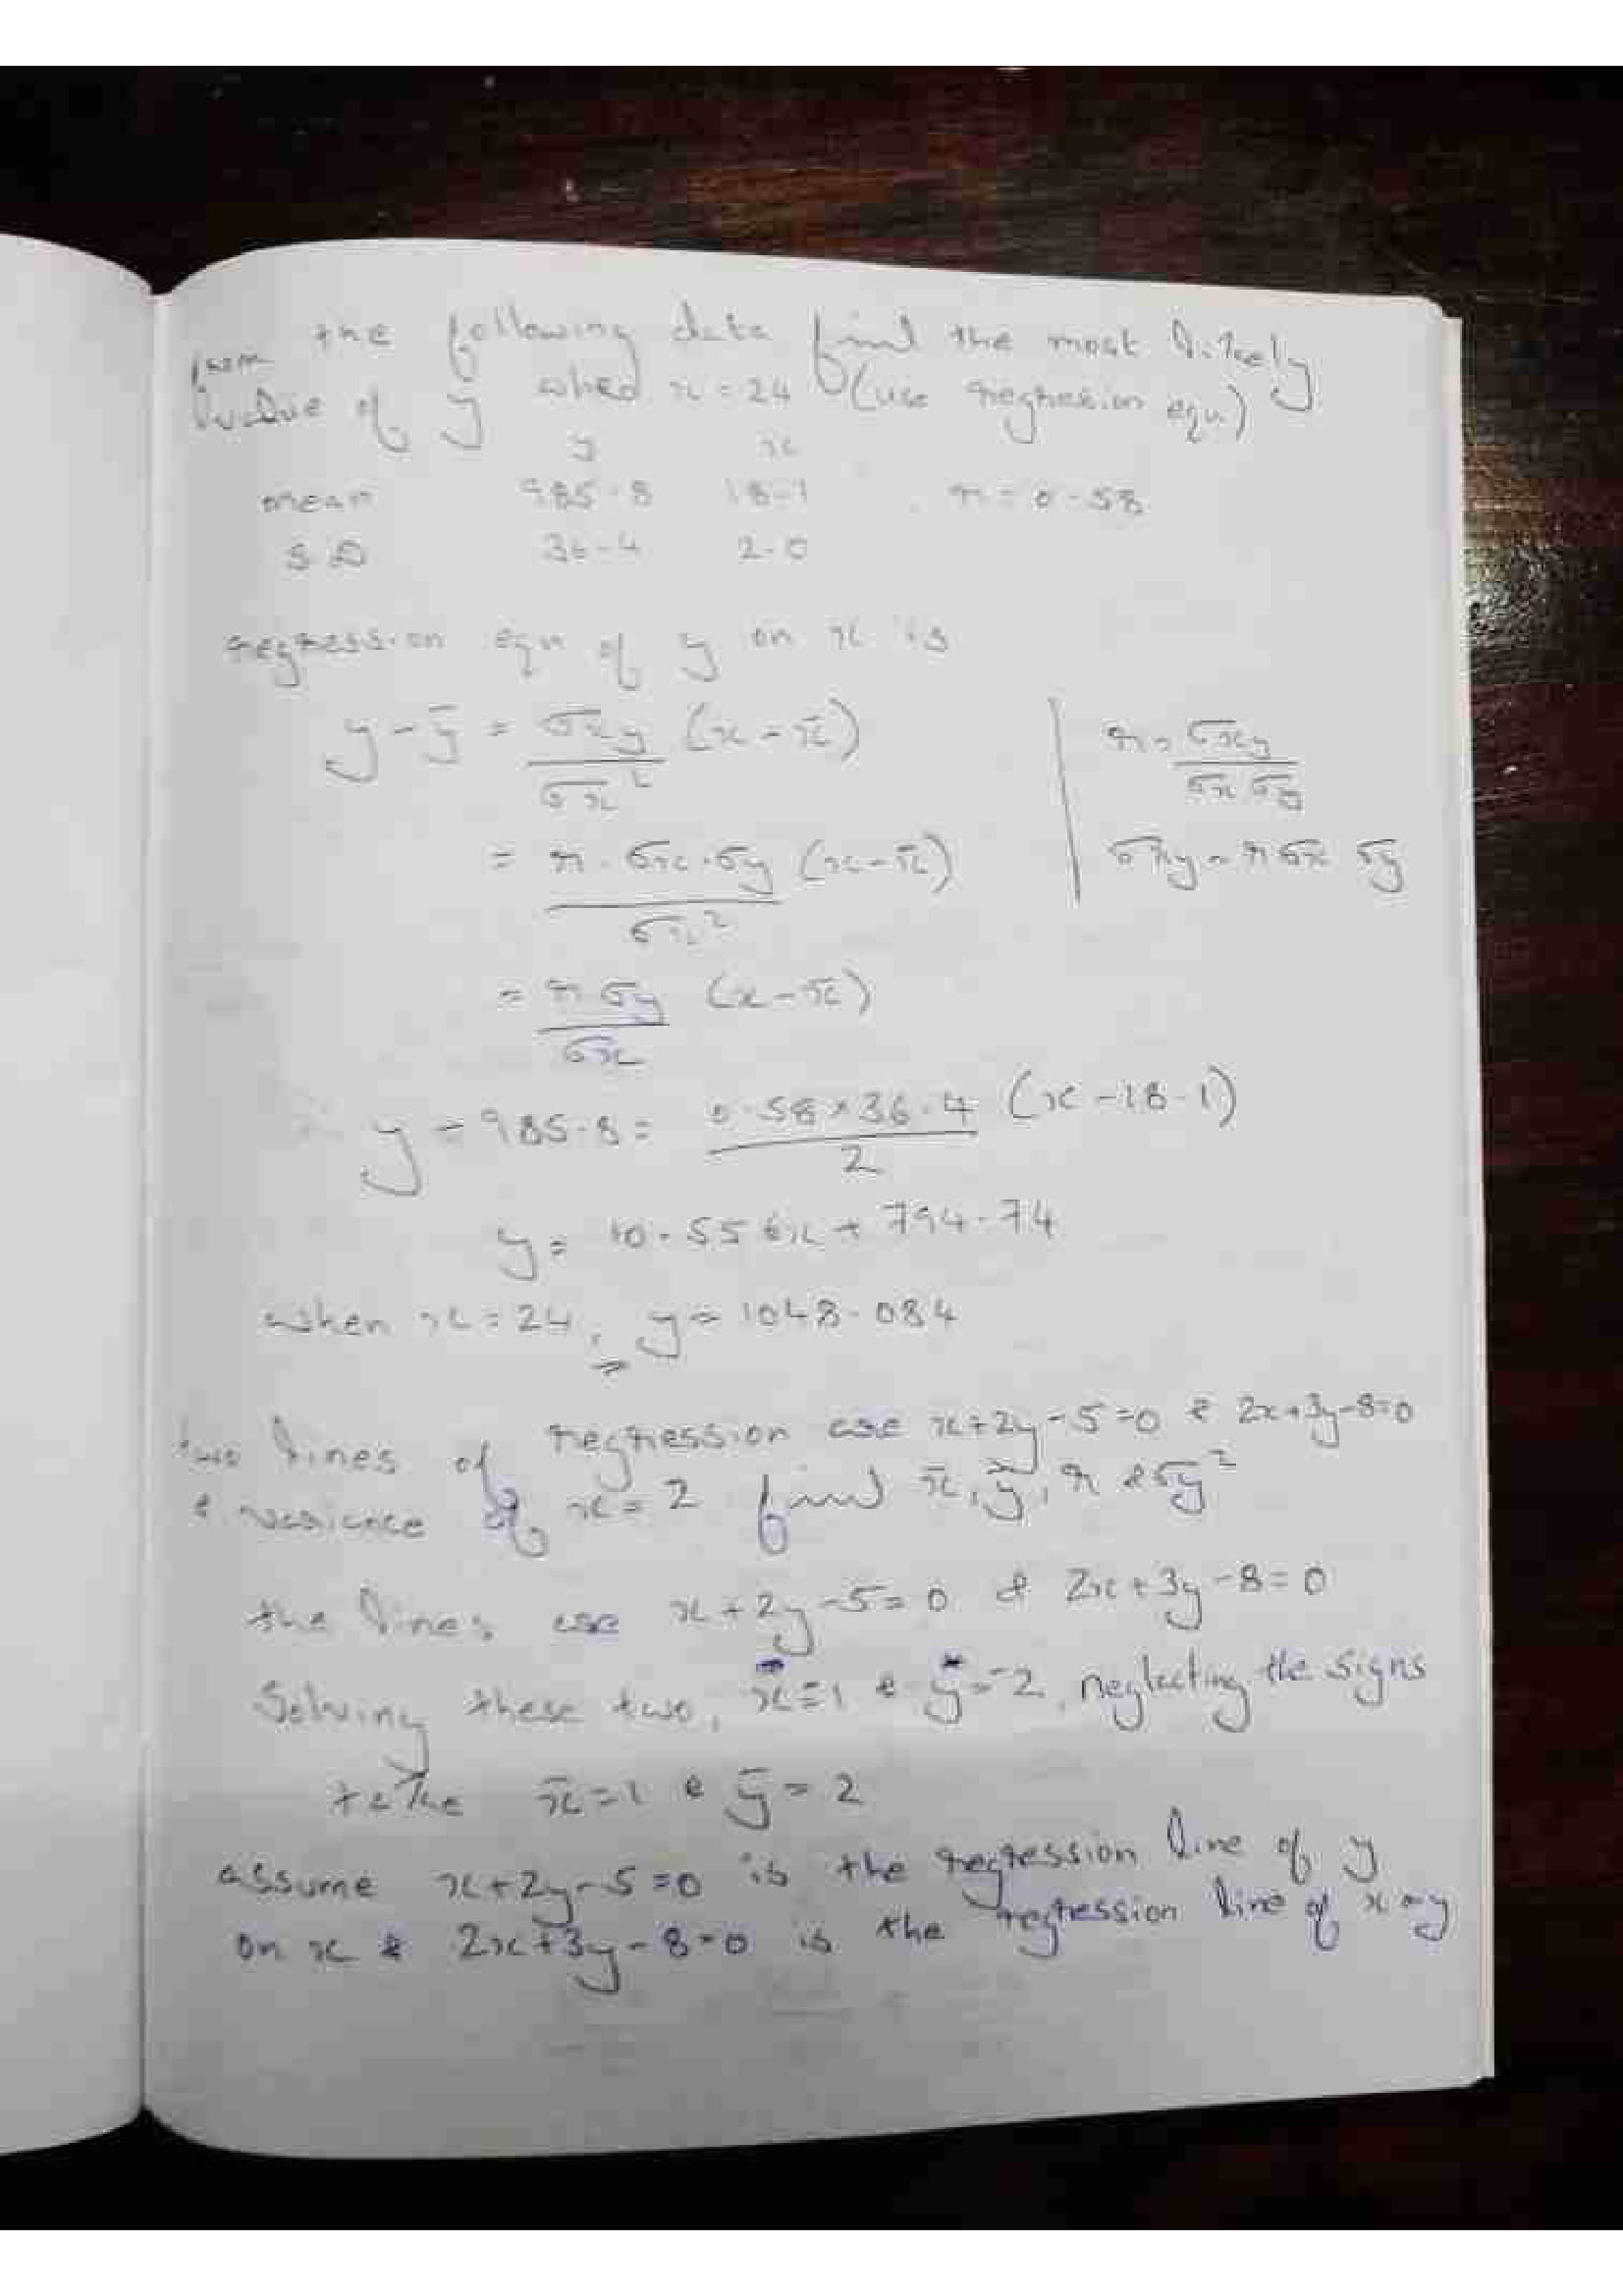 from the following data find the most likely
value of y when x = 24 (use regression equ.)
y x
mean 985.8 18.1 r = 0.58
S.D 36.4 2.0
regression equ of y on x is
y - ȳ = σxy / σx² (x - x̄)
r = σxy / σx σy
= r · σx · σy / σx² (x - x̄)
σxy = r σx σy
= r σy / σx (x - x̄)
∴ y - 985.8 = 0.58 × 36.4 / 2 (x - 18.1)
y = 10.556x + 794.74
when x = 24, y = 1048.084
two lines of regression are x+2y-5=0 & 2x+3y-8=0
& variance of x = 2 find x̄, ȳ, r & σy²
the lines are x + 2y - 5 = 0 & 2x + 3y - 8 = 0
Solving these two, x = 1 & y = 2, neglecting the signs
take x̄ = 1 & ȳ = 2
assume x + 2y - 5 = 0 is the regression line of y
on x & 2x + 3y - 8 = 0 is the regression line of x on y